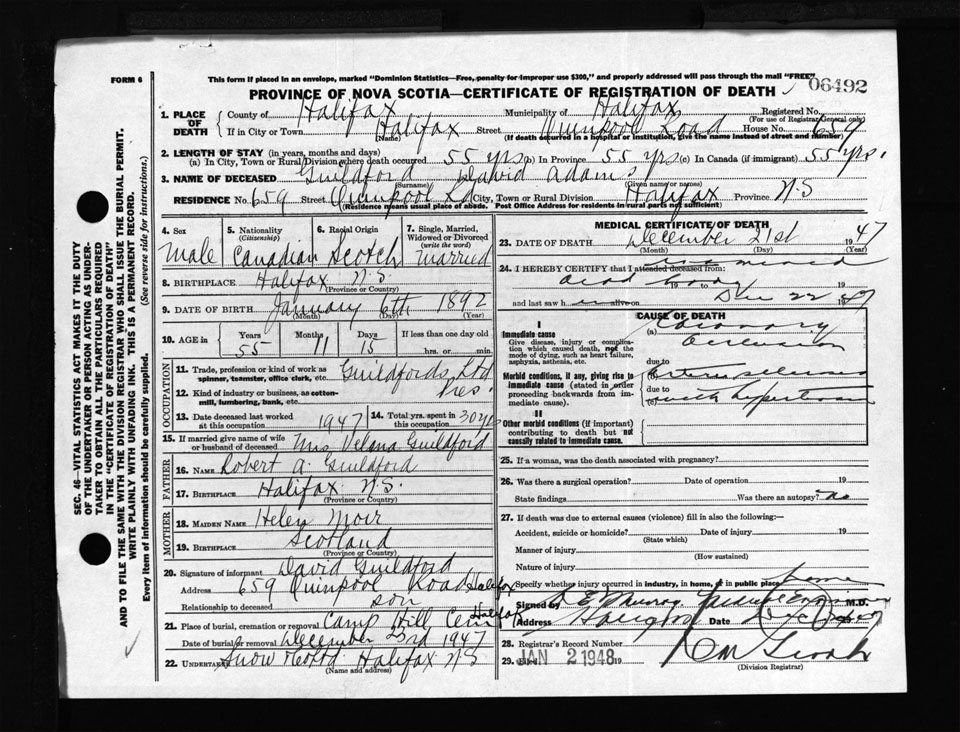 FORM 6
This form if placed in an envelope, marked "Dominion Statistics—Free, penalty for improper use $300," and properly addressed will pass through the mail "FREE"
06492
PROVINCE OF NOVA SCOTIA—CERTIFICATE OF REGISTRATION OF DEATH
1. PLACE OF DEATH
County of Halifax Municipality of Halifax Registered No.
(For use of Registrar General only)
If in City or Town Halifax Street Quinpool Road House No. 659
(Name) (If death occurred in a hospital or institution, give the name instead of street and number)
2. LENGTH OF STAY (in years, months and days)
(a) In City, Town or Rural Division where death occurred 55 yrs (b) In Province 55 yrs (c) In Canada (if immigrant) 55 yrs.
3. NAME OF DECEASED Guildford David Adams
(Surname) (Given name or names)
RESIDENCE No. 659 Street Quinpool Rd City, Town or Rural Division Halifax Province N.S
(Residence means usual place of abode. Post Office Address for residents in rural parts not sufficient)
4. Sex
Male
5. Nationality
(Citizenship)
Canadian
6. Racial Origin
Scotch
7. Single, Married, Widowed or Divorced
(write the word)
Married
8. BIRTHPLACE Halifax N.S.
(Province or Country)
9. DATE OF BIRTH January 6th 1892
(Month) (Day) (Year)
10. AGE in Years Months Days If less than one day old
55 11 15 hrs. or min.
OCCUPATION
11. Trade, profession or kind of work as spinner, teamster, office clerk, etc. Guildfords Ltd
12. Kind of industry or business, as cotton-mill, lumbering, bank, etc. Pres.
13. Date deceased last worked at this occupation 1947
14. Total yrs. spent in this occupation 30 yrs
15. If married give name of wife or husband of deceased Mrs Velana Guildford
FATHER
16. NAME Robert A. Guildford
17. BIRTHPLACE Halifax N.S.
(Province or Country)
MOTHER
18. MAIDEN NAME Helen Moir
19. BIRTHPLACE Scotland
(Province or Country)
20. Signature of informant David Guildford
Address 659 Quinpool Road Halifax
Relationship to deceased son
21. Place of burial, cremation or removal Camp Hill Cem Halifax
Date of burial or removal December 23rd 1947
22. UNDERTAKER Snow Halifax N S
(Name and address)
MEDICAL CERTIFICATE OF DEATH
23. DATE OF DEATH December 21st 1947
(Month) (Day) (Year)
24. I HEREBY CERTIFY that I attended deceased from: examined
dead body 19 to 19
and last saw h alive on Dec 22 1947
CAUSE OF DEATH
I
Immediate cause
Give disease, injury or complication which caused death, not the mode of dying, such as heart failure, asphyxia, asthenia, etc.
(a) Coronary
occlusion
due to
Morbid conditions, if any, giving rise to immediate cause (stated in order proceeding backwards from immediate cause).
(b) Arteriosclerosis
due to
(c) with hypertension
II
Other morbid conditions (if important) contributing to death but not causally related to immediate cause.
25. If a woman, was the death associated with pregnancy?
26. Was there a surgical operation? Date of operation 19
State findings Was there an autopsy? no
27. If death was due to external causes (violence) fill in also the following:—
Accident, suicide or homicide? Date of injury 19
(State which)
Manner of injury
(How sustained)
Nature of injury
Specify whether injury occurred in industry, in home, or in public place home
Signed by Murray M.D.
Address Date
28. Registrar's Record Number
29. Filed JAN 2 1948 19
(Division Registrar)
SEC. 46—VITAL STATISTICS ACT MAKES IT THE DUTY
OF THE UNDERTAKER OR PERSON ACTING AS UNDER-
TAKER TO OBTAIN ALL THE PARTICULARS REQUIRED
IN THE "CERTIFICATE OF REGISTRATION OF DEATH"
AND TO FILE THE SAME WITH THE DIVISION REGISTRAR WHO SHALL ISSUE THE BURIAL PERMIT.
WRITE PLAINLY WITH UNFADING INK. THIS IS A PERMANENT RECORD.
Every item of Information should be carefully supplied. (See reverse side for instructions.)